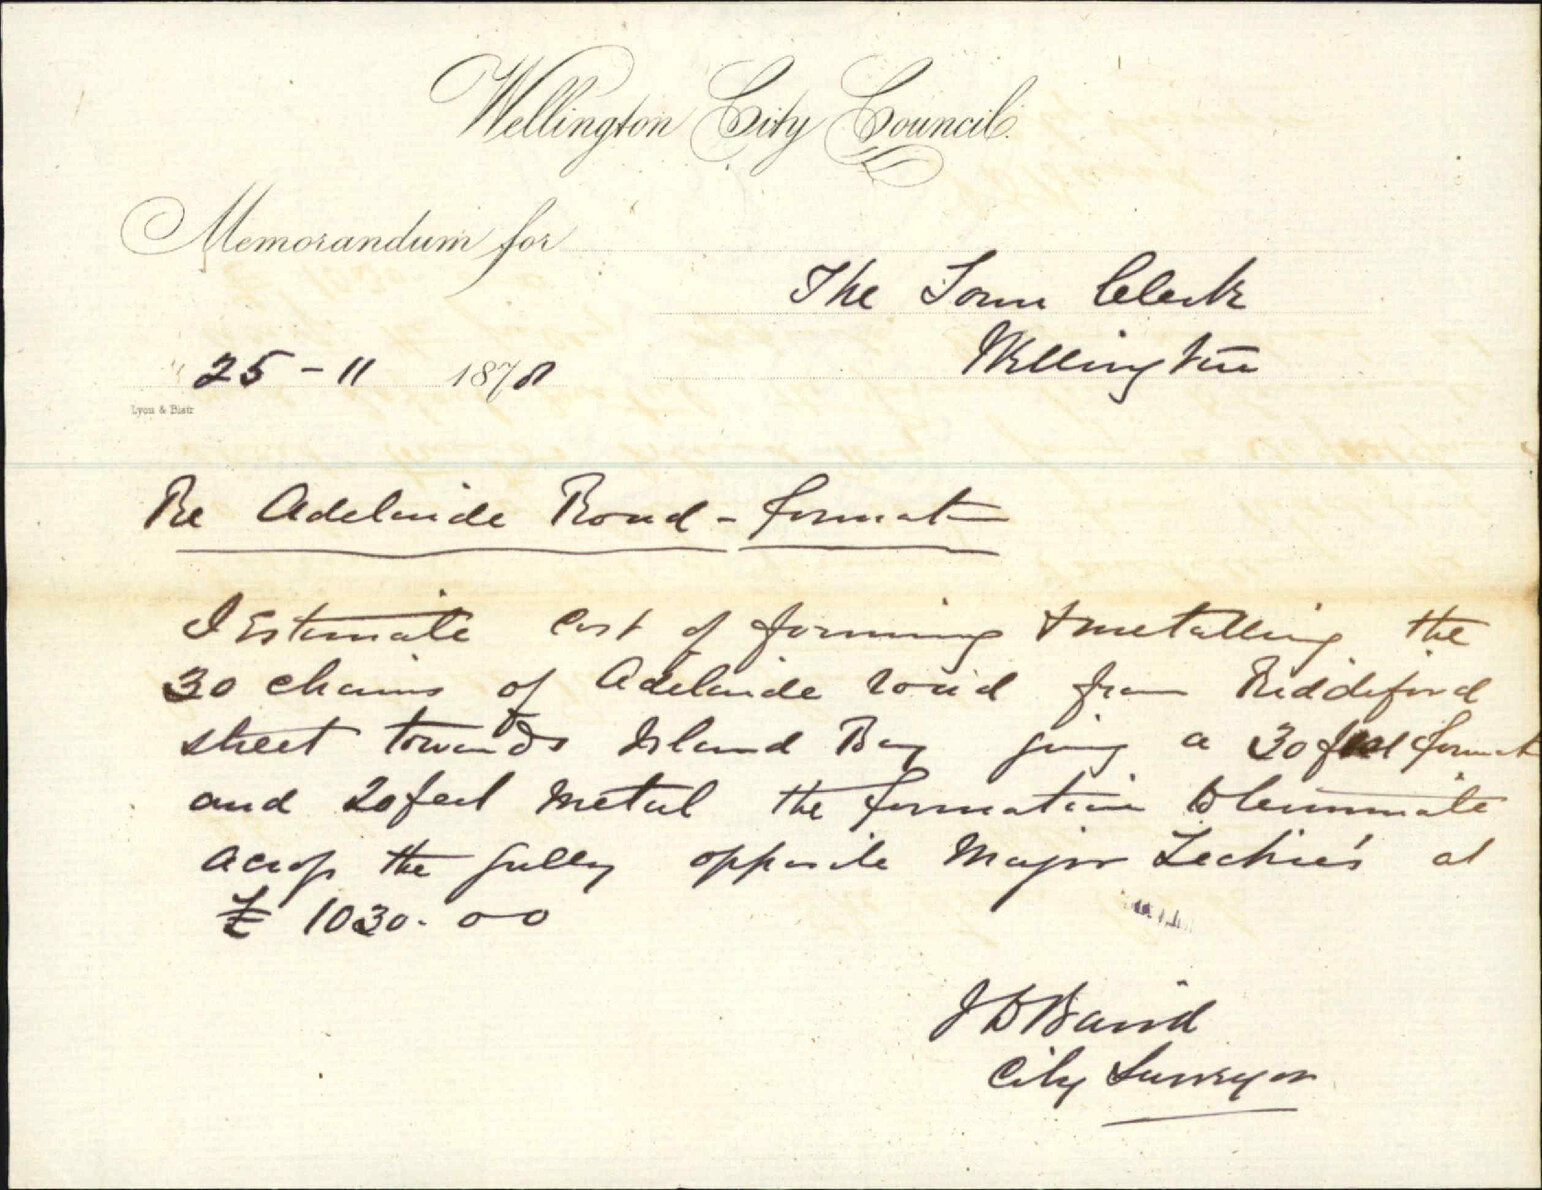 Wellington City Council.
Memorandum for
The Town Clerk
Wellington
25 - 11 1878
Lyon & Blair
Re Adelaide Road - format
I Estimate Cost of forming & metalling the
30 chains of Adelaide road from Riddiford
street towards Island Bay giving a 30 feet format
and 20 feet metal the formation to terminate
across the gully opposite Major Leckie's at
£ 1030. 00
J D Baird
City Surveyor